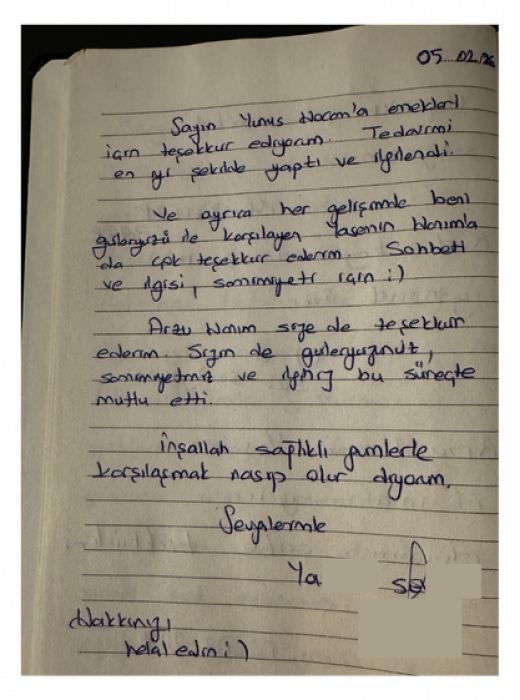 05.02.26
Sayın Yunus Hocam'a emekleri
için teşekkür ediyorum. Tedavimi
en iyi şekilde yaptı ve ilgilendi.
Ve ayrıca her gelişimde beni
güleryüzü ile karşılayan Yasemin Hanımla
da çok teşekkür ederim. Sohbeti
ve ilgisi, samimiyeti için :)
Arzu Hanım size de teşekkür
ederim. Sizin de güleryüzünüz,
samimiyetiniz ve ilginiz bu süreçte
mutlu etti.
İnşallah sağlıklı günlerle
karşılaşmak nasip olur diyorum.
Sevgilerimle
Ya
Hakkınızı
helal edin :)